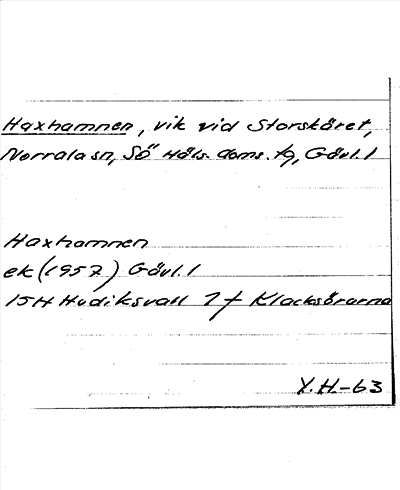 Haxhamnen, vik vid Storskäret,
Norrala sn, Sö Häls. doms. tg, Gävl. l
Haxhamnen
ek (1957) Gävl. l
15H Hudiksvall 7f Klacksörarna
Y.H.-63